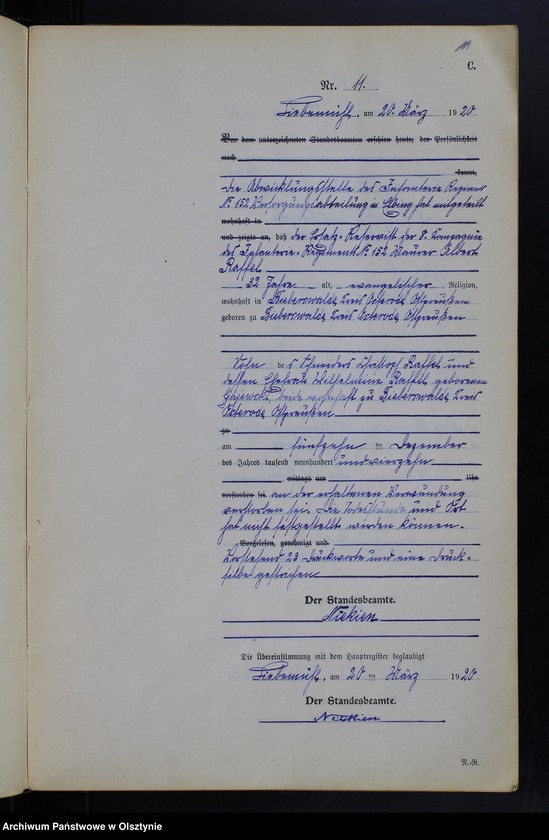 C.
Nr. 11.
Liebemühl, am 20. März 1920
Vor dem unterzeichneten Standesbeamten erschien heute, der Persönlichkeit
nach
kannt,
die Abwicklungsstelle des Infanterie Regiment
No 152 Versorgungsabteilung in Elbing hat mitgeteilt
wohnhaft in
und zeigte an, daß der Ersatz-Reservist der 8. Kompagnie
des Infanterie-Regiments No 152 Maurer Albert
Raffel
32 Jahre alt, evangelischer Religion,
wohnhaft in Bieberswalde, Kreis Osterode Ostpreußen
geboren zu Bieberswalde Kreis Osterode Ostpreußen
Sohn des Schneiders Christoph Raffel und
dessen Ehefrau Wilhelmine Raffel geborenen
beide wohnhaft zu Bieberswalde Kreis
Osterode Ostpreußen
zu
am fünfzehn ten Dezember
des Jahres tausend neunhundert und vierzehn
mittags um Uhr
verstorben sei an der erhaltenen Verwundung
verstorben sei. Die Todesstunde und Ort
hat nicht festgestellt werden können.
Vorgelesen, genehmigt und
Vorstehend 23 Druckworte und eine Druck-
silbe gestrichen
Der Standesbeamte.
Niekien
Die Übereinstimmung mit dem Hauptregister beglaubigt
Liebemühl, am 20 ten März 1920.
Der Standesbeamte.
Niekien
N.-R.
Archiwum Państwowe w Olsztynie